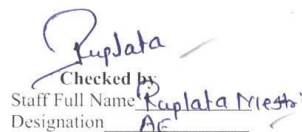 Ruplata
Checked by
Staff Full Name Ruplata Mestri
Designation AE